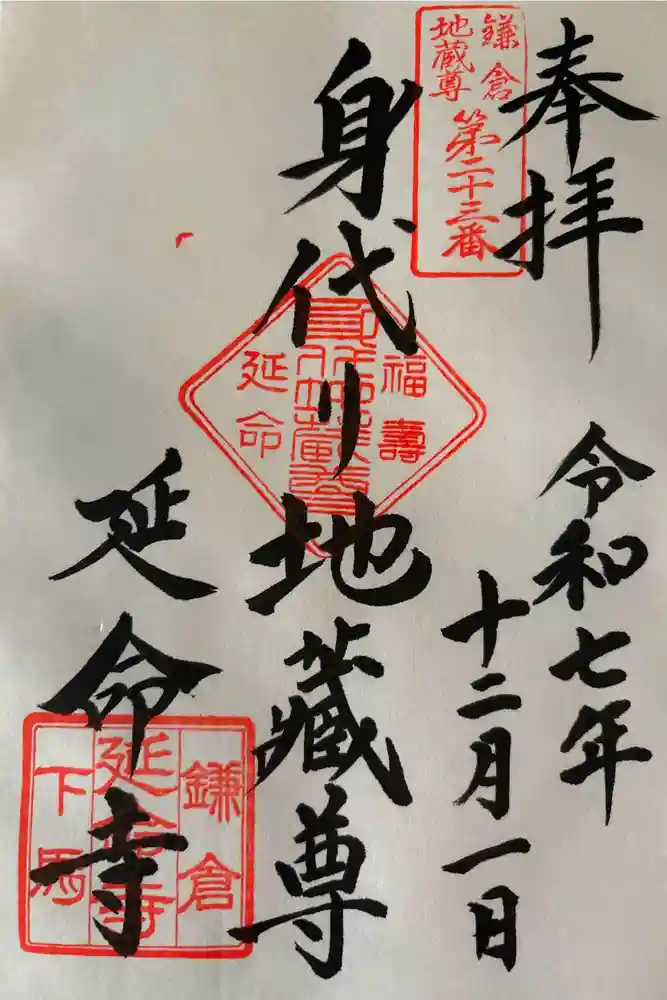 奉拝
令和七年
十二月一日
鎌倉
地蔵尊
第二十三番
身代り地蔵尊
福壽
身代地蔵尊
延命
延命寺
鎌倉
延命寺
下馬